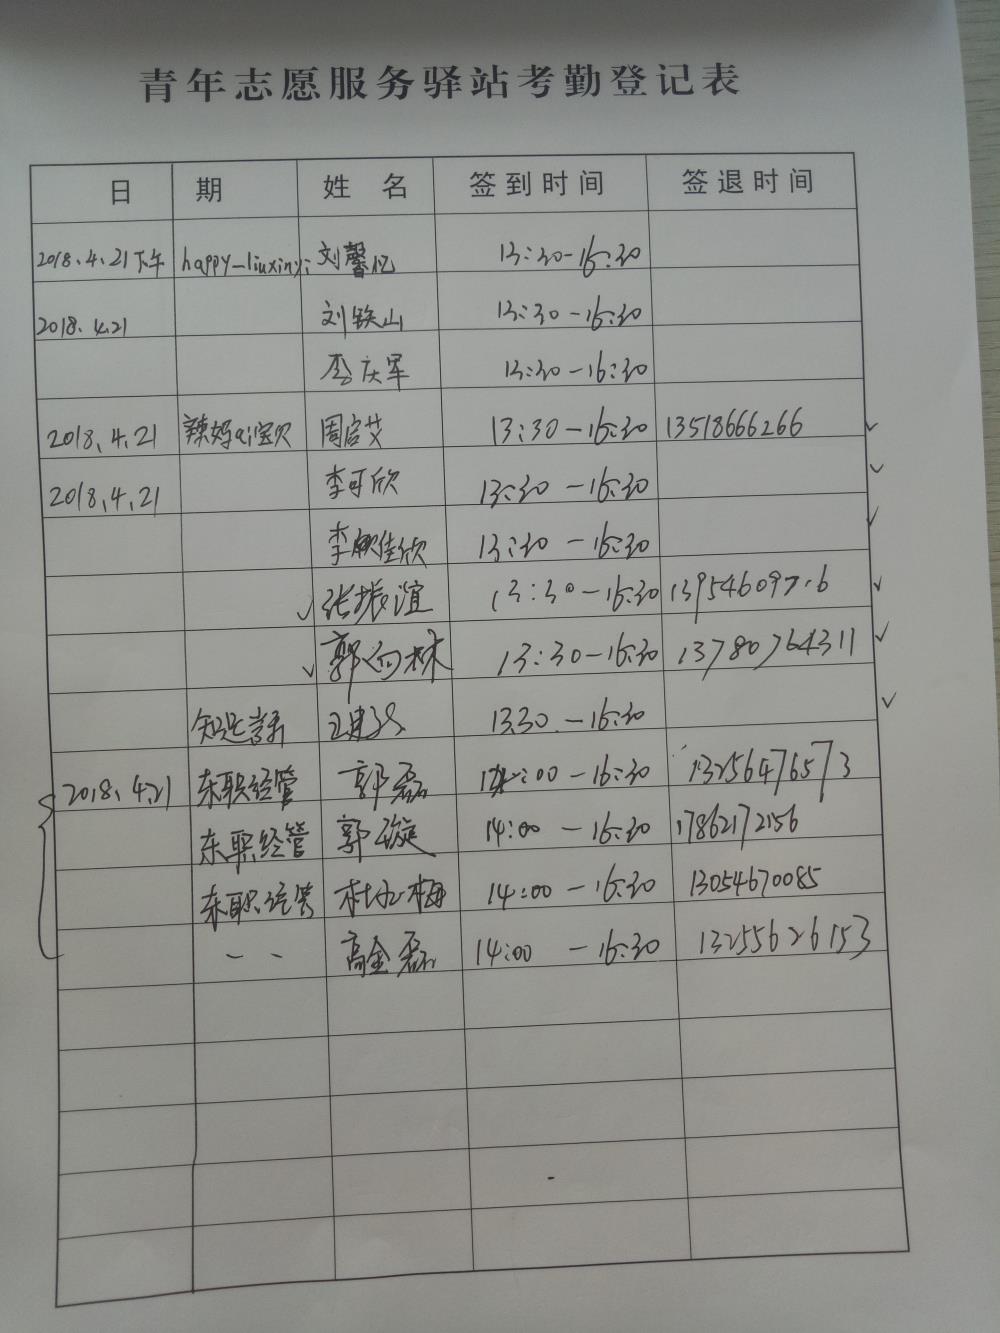 青年志愿服务驿站考勤登记表
日 期 姓 名 签到时间 签退时间
2018.4.21下午 happy-liuxinyi 刘馨忆 13:30-16:30
2018.4.21 刘铁山 13:30-16:30
李庆军 13:30-16:30
2018.4.21 辣妈ai宝贝 周启艾 13:30-16:30 13518666266
2018.4.21 李可欣 13:30-16:30
李 佳欣 13:30-16:30
张振谊 13:30-16:30
郭向林 13:30-16:30 13780764311
13:30-16:30
2018.4.21 东职经管 郭磊 14:00-16:30 13256476573
东职经管 郭璇 14:00-16:30 17862172156
东职经管 杜 梅 14:00-16:30 13054670085
-- 高金磊 14:00-16:30 13255626153